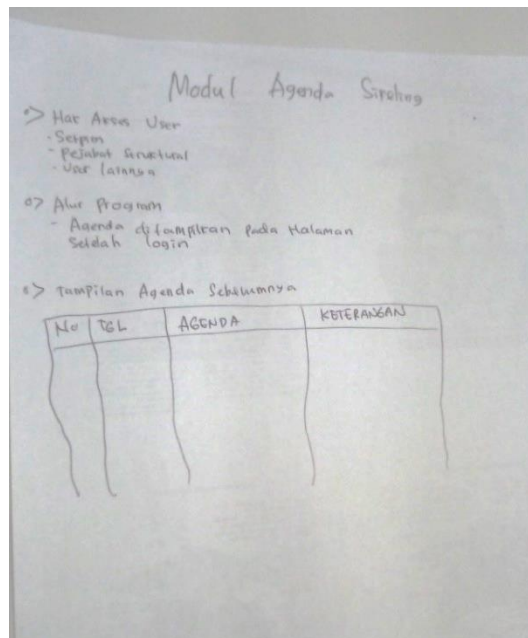 Modul Agenda Sirekog
=> Hak Akses User
- Serpim
- Pejabat Struktural
- User lainnya
=> Alur Program
- Agenda ditampilkan pada Halaman
Setelah login
=> Tampilan Agenda Sebelumnya
No TGL AGENDA KETERANGAN